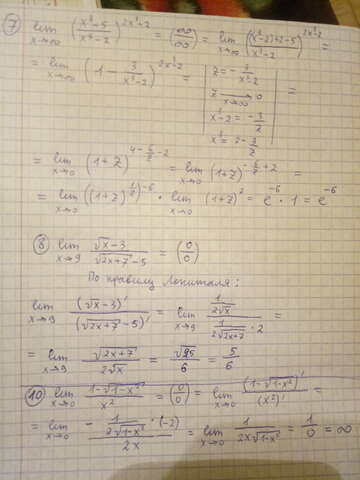 ⑦ lim x→∞ ((x²-5)/(x²-2))^(2x²-2) = (∞/∞) = lim x→∞ (((x²-2)+2-5)/(x²-2))^(2x²-2) =
= lim x→∞ (1 - 3/(x²-2))^(2x²-2) = | z = -3/(x²-2)
z → 0 x→∞
x²-2 = -3/z
x² = 2-3/z | =
= lim x→0 (1+z)^(4-6/z-2) = lim x→0 (1+z)^(-6/z+2) =
= lim x→0 ((1+z)^(1/z))^(-6) · lim x→0 (1+z)² = e^(-6) · 1 = e^(-6)
⑧ lim x→9 (√x-3)/(√(2x+7)-5) = (0/0)
По правилу Лопиталя:
lim x→9 (√x-3)'/(√(2x+7)-5)' = lim x→9 (1/(2√x))/(1/(2√(2x+7)) · 2) =
= lim x→9 √(2x+7)/(2√x) = √25/6 = 5/6
⑩ lim x→0 (1-√(1-x²))/x² = (0/0) = lim x→0 (1-√(1-x²))'/(x²)' =
= lim x→0 (-1/(2√(1-x²)) · (-2))/(2x) = lim x→0 1/(2x√(1-x²)) = 1/0 = ∞